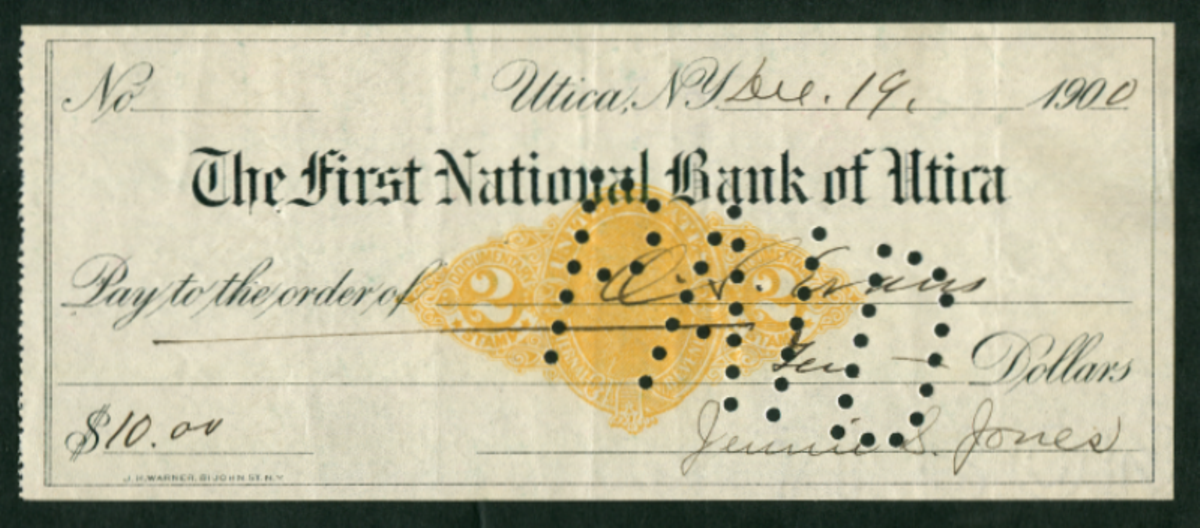 No Utica, N.Y. Dec. 19, 1900
The First National Bank of Utica
DOCUMENTARY UNITED STATES DOCUMENTARY
Pay to the order of D. S. Evans
2 2
STAMP INTERNAL REVENUE STAMP
Ten Dollars
$10.00
Jennie S. Jones
J. H. WARNER, 81 JOHN ST. N.Y.
PAID